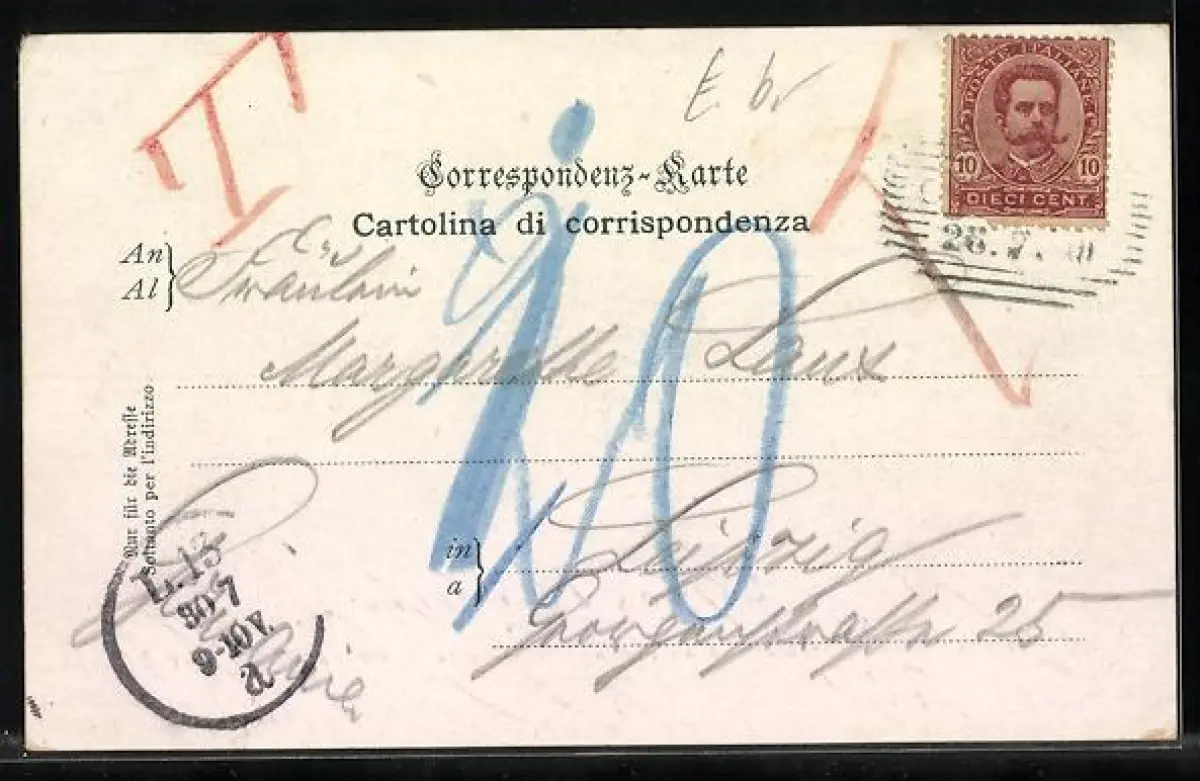 T
E. br
T
POSTE ITALIANE
10 10
DIECI CENT.
Correspondenz-Karte
Cartolina di corrispondenza
An
Al
Fräulein
Margarethe Laux
20
Nur für die Adresse
Soltanto per l'indirizzo
in
a
Leipzig
25
L. 13
30 7
9-10 V.